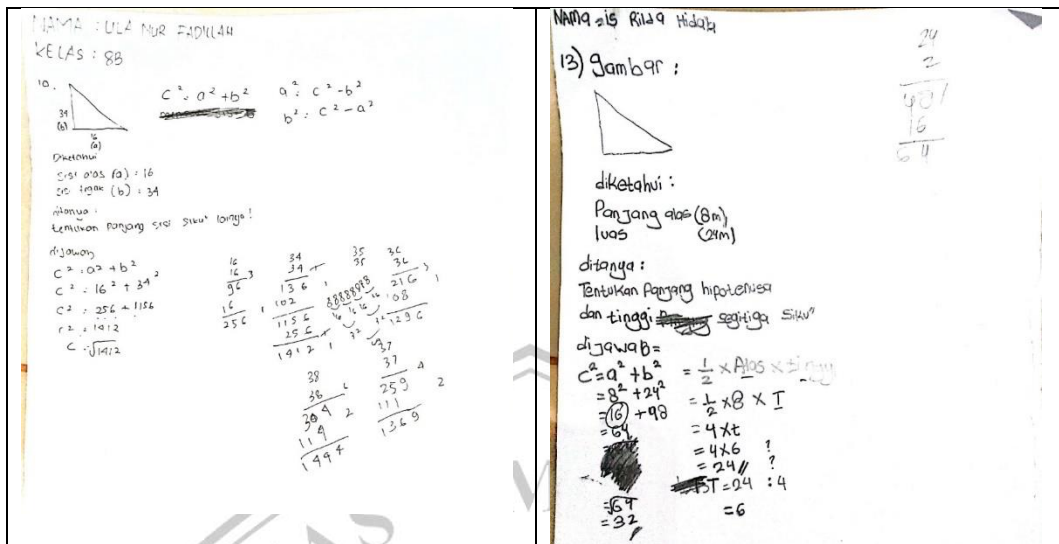 NAMA : ULA NUR FADILLAH
KELAS : 8B
10.
34
(b)
16
(a)
C² = a² + b²
a² = c² - b²
b² = c² - a²
Diketahui
sisi alas (a) = 16
sisi tegak (b) = 34
ditanya :
tentukan panjang sisi siku² lainya !
dijawab
C² = a² + b²
C² = 16² + 34²
C² = 256 + 1156
C² = 1412
C = √1412
16
16
96
16
256
34
34
136
102
1156
256
1412
35
35
36
36
216
108
1296
38
38
304
114
1444
37
37
259
111
1369
NAMA = is Rilda Hidab
13) gambar :
24
2
48
16
64
diketahui :
Panjang alas (8m)
luas (24m)
ditanya :
Tentukan Panjang hipotenusa
dan tinggi segitiga siku"
dijawab =
C² = a² + b²
= 8² + 24²
= 16 + 48
= 64
= √64
= 32
= 1/2 x Alas x tinggi
= 1/2 x 8 x T
= 4 x t
= 4 x 6 ?
= 24 // ?
T = 24 : 4
= 6